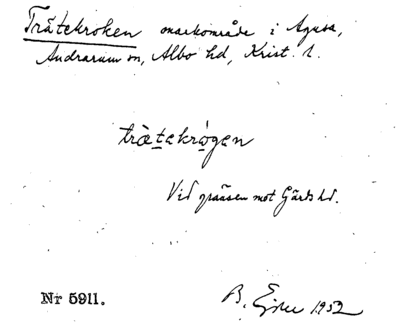 Trätekroken markområde i Agusa,
Andrarum sn, Albo hd, Krist. l.
trätekrogen
Vid gränsen mot Gärds hd.
Nr 5911.
B. Ejder 1952